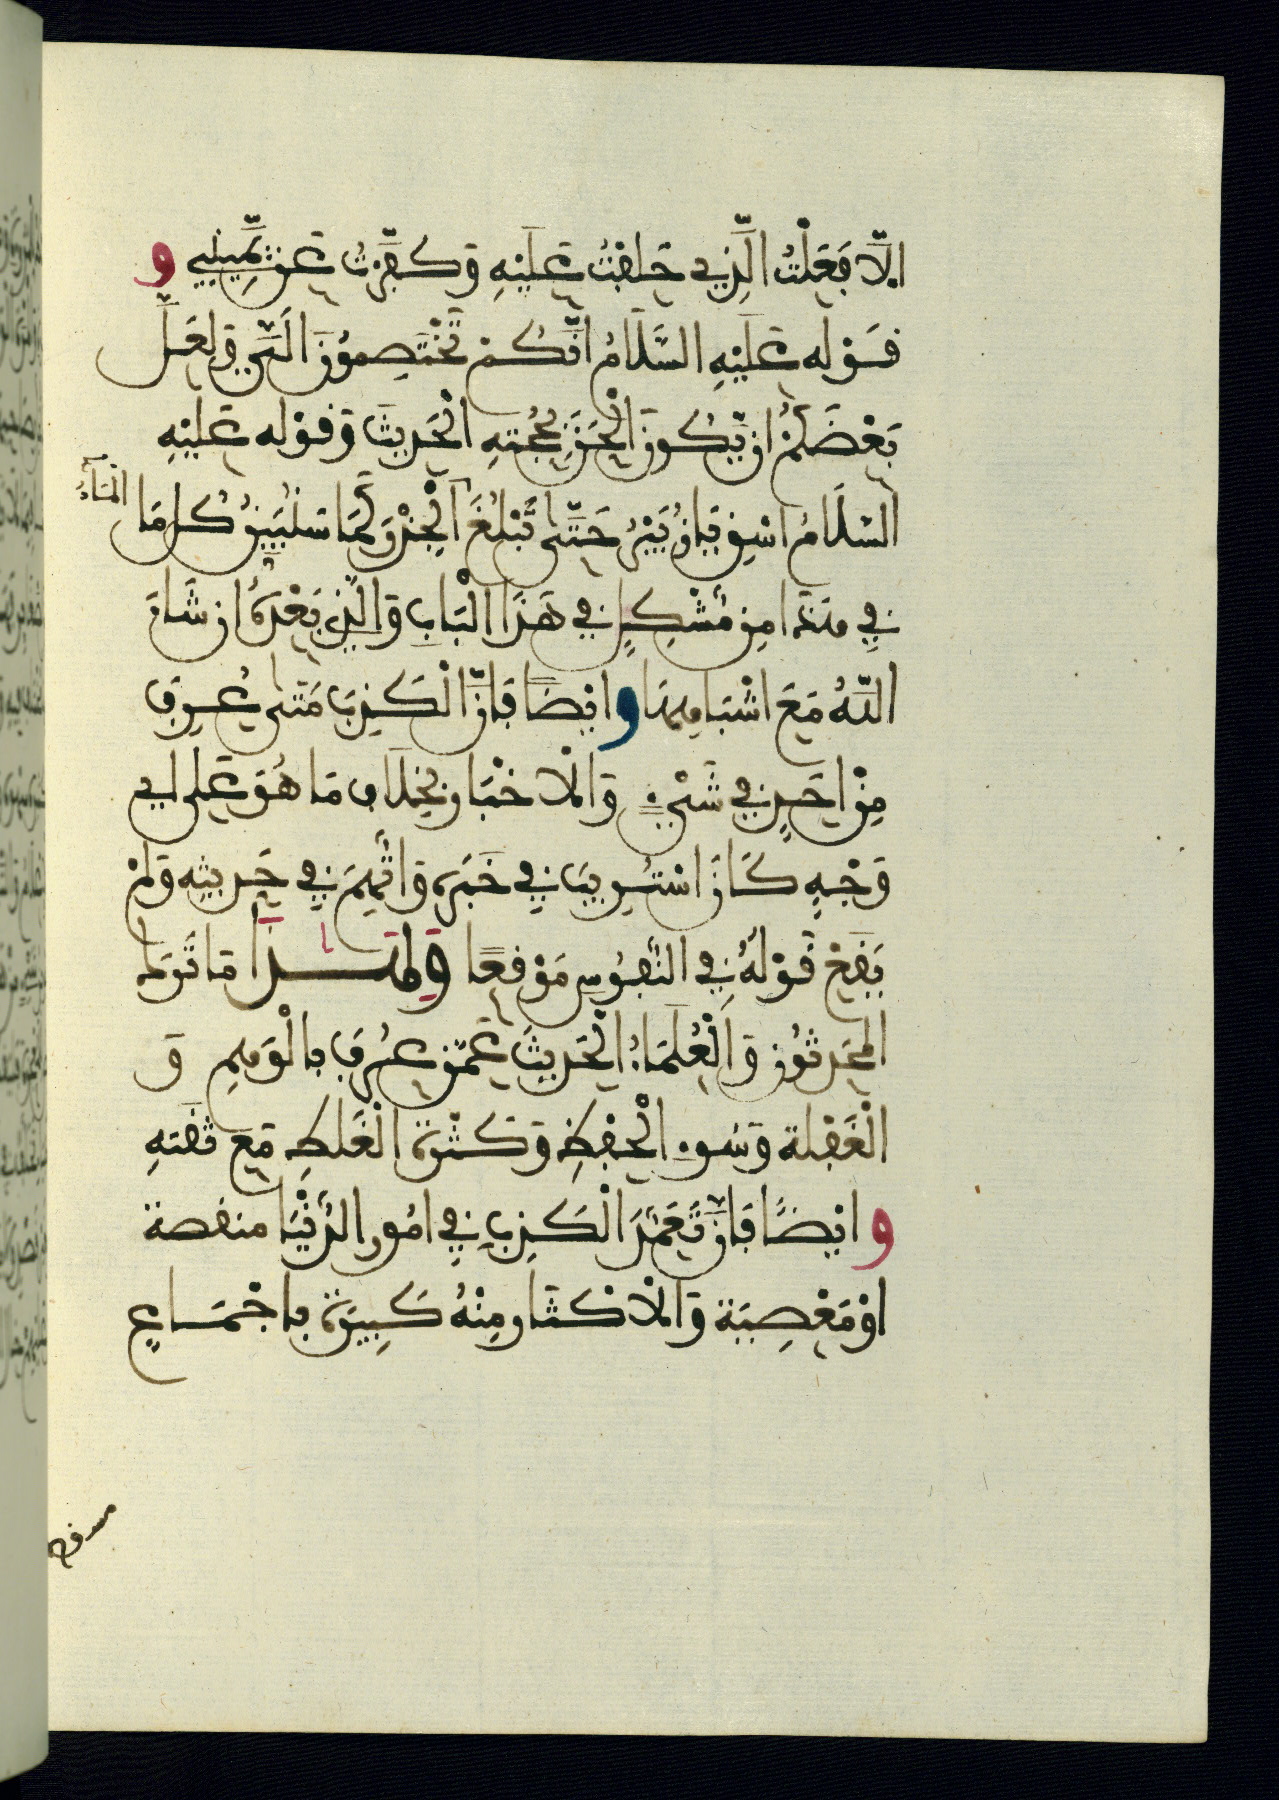 الّا فَعَلْتُ الَّذِي حَلَفْتُ عَلَيْهِ وَكَفَّرْتُ عَنْ يَّمِينِي و
قَوْله عَلَيْهِ السَّلَامُ انَّكُمْ تَخْتَصِمُونَ الَيَّ وَلَعَلَّ
بَعْضَكُمْ ان يَّكُونَ الْحَنَ بِحُجَّتِهِ الْحَدِيثَ وَقَوْله عَلَيْهِ
السَّلَامُ اسْقِ يَا زُبَيْرُ حَتَّى يَبْلُغَ الْجَدْرَ كَمَا سَنُبَيِّنُ كُل مَا الْمَاءُ
فِي هَذَا مِن مُشْكِلٍ فِي هَذَا الْبَابِ وَالَّذِي بَعْدَهُ ان شَاءَ
اللَّهُ مَعَ اشْبَاهِهِمَا وايْضًا فَإِنَّ الْكَذِبَ مَتَى عُرِفَ
مِنْ احَدٍ فِي شَيْءٍ مِنَ الْاخْبَارِ بِخِلَافِ مَا هُوَ عَلَى اي
وَجْهٍ كَانَ اسْتُرِيبَ فِي خَبَرِهِ وَاتُّهِمَ فِي حَدِيثِه وَلَمْ
يَقَعْ قَوْلُهُ فِي النُّفُوسِ مَوْقِعًا وَلِهَذَا مَا تَرَكَ
الْمحَدِثُونَ وَالْعُلَمَاءُ الْحَدِيثَ عَمَّنْ عُرِفَ بِالْوَهِمِ وَ
الْغَفْلة وَسُوءِ الْحِفْظِ وَكَثْرَةِ الْغَلَطِ مَعَ ثقَتِهِ
و ايْضًا فَإِنَّ تَعَمُّدَ الْكَذِبِ فِي امُورِ الدُّنْيَا منقصة
اوْ مَعْصِيَة وَالْاكْثَار مِنْهُ كَبِيرَة بِاجْمَاعٍ
مسقط